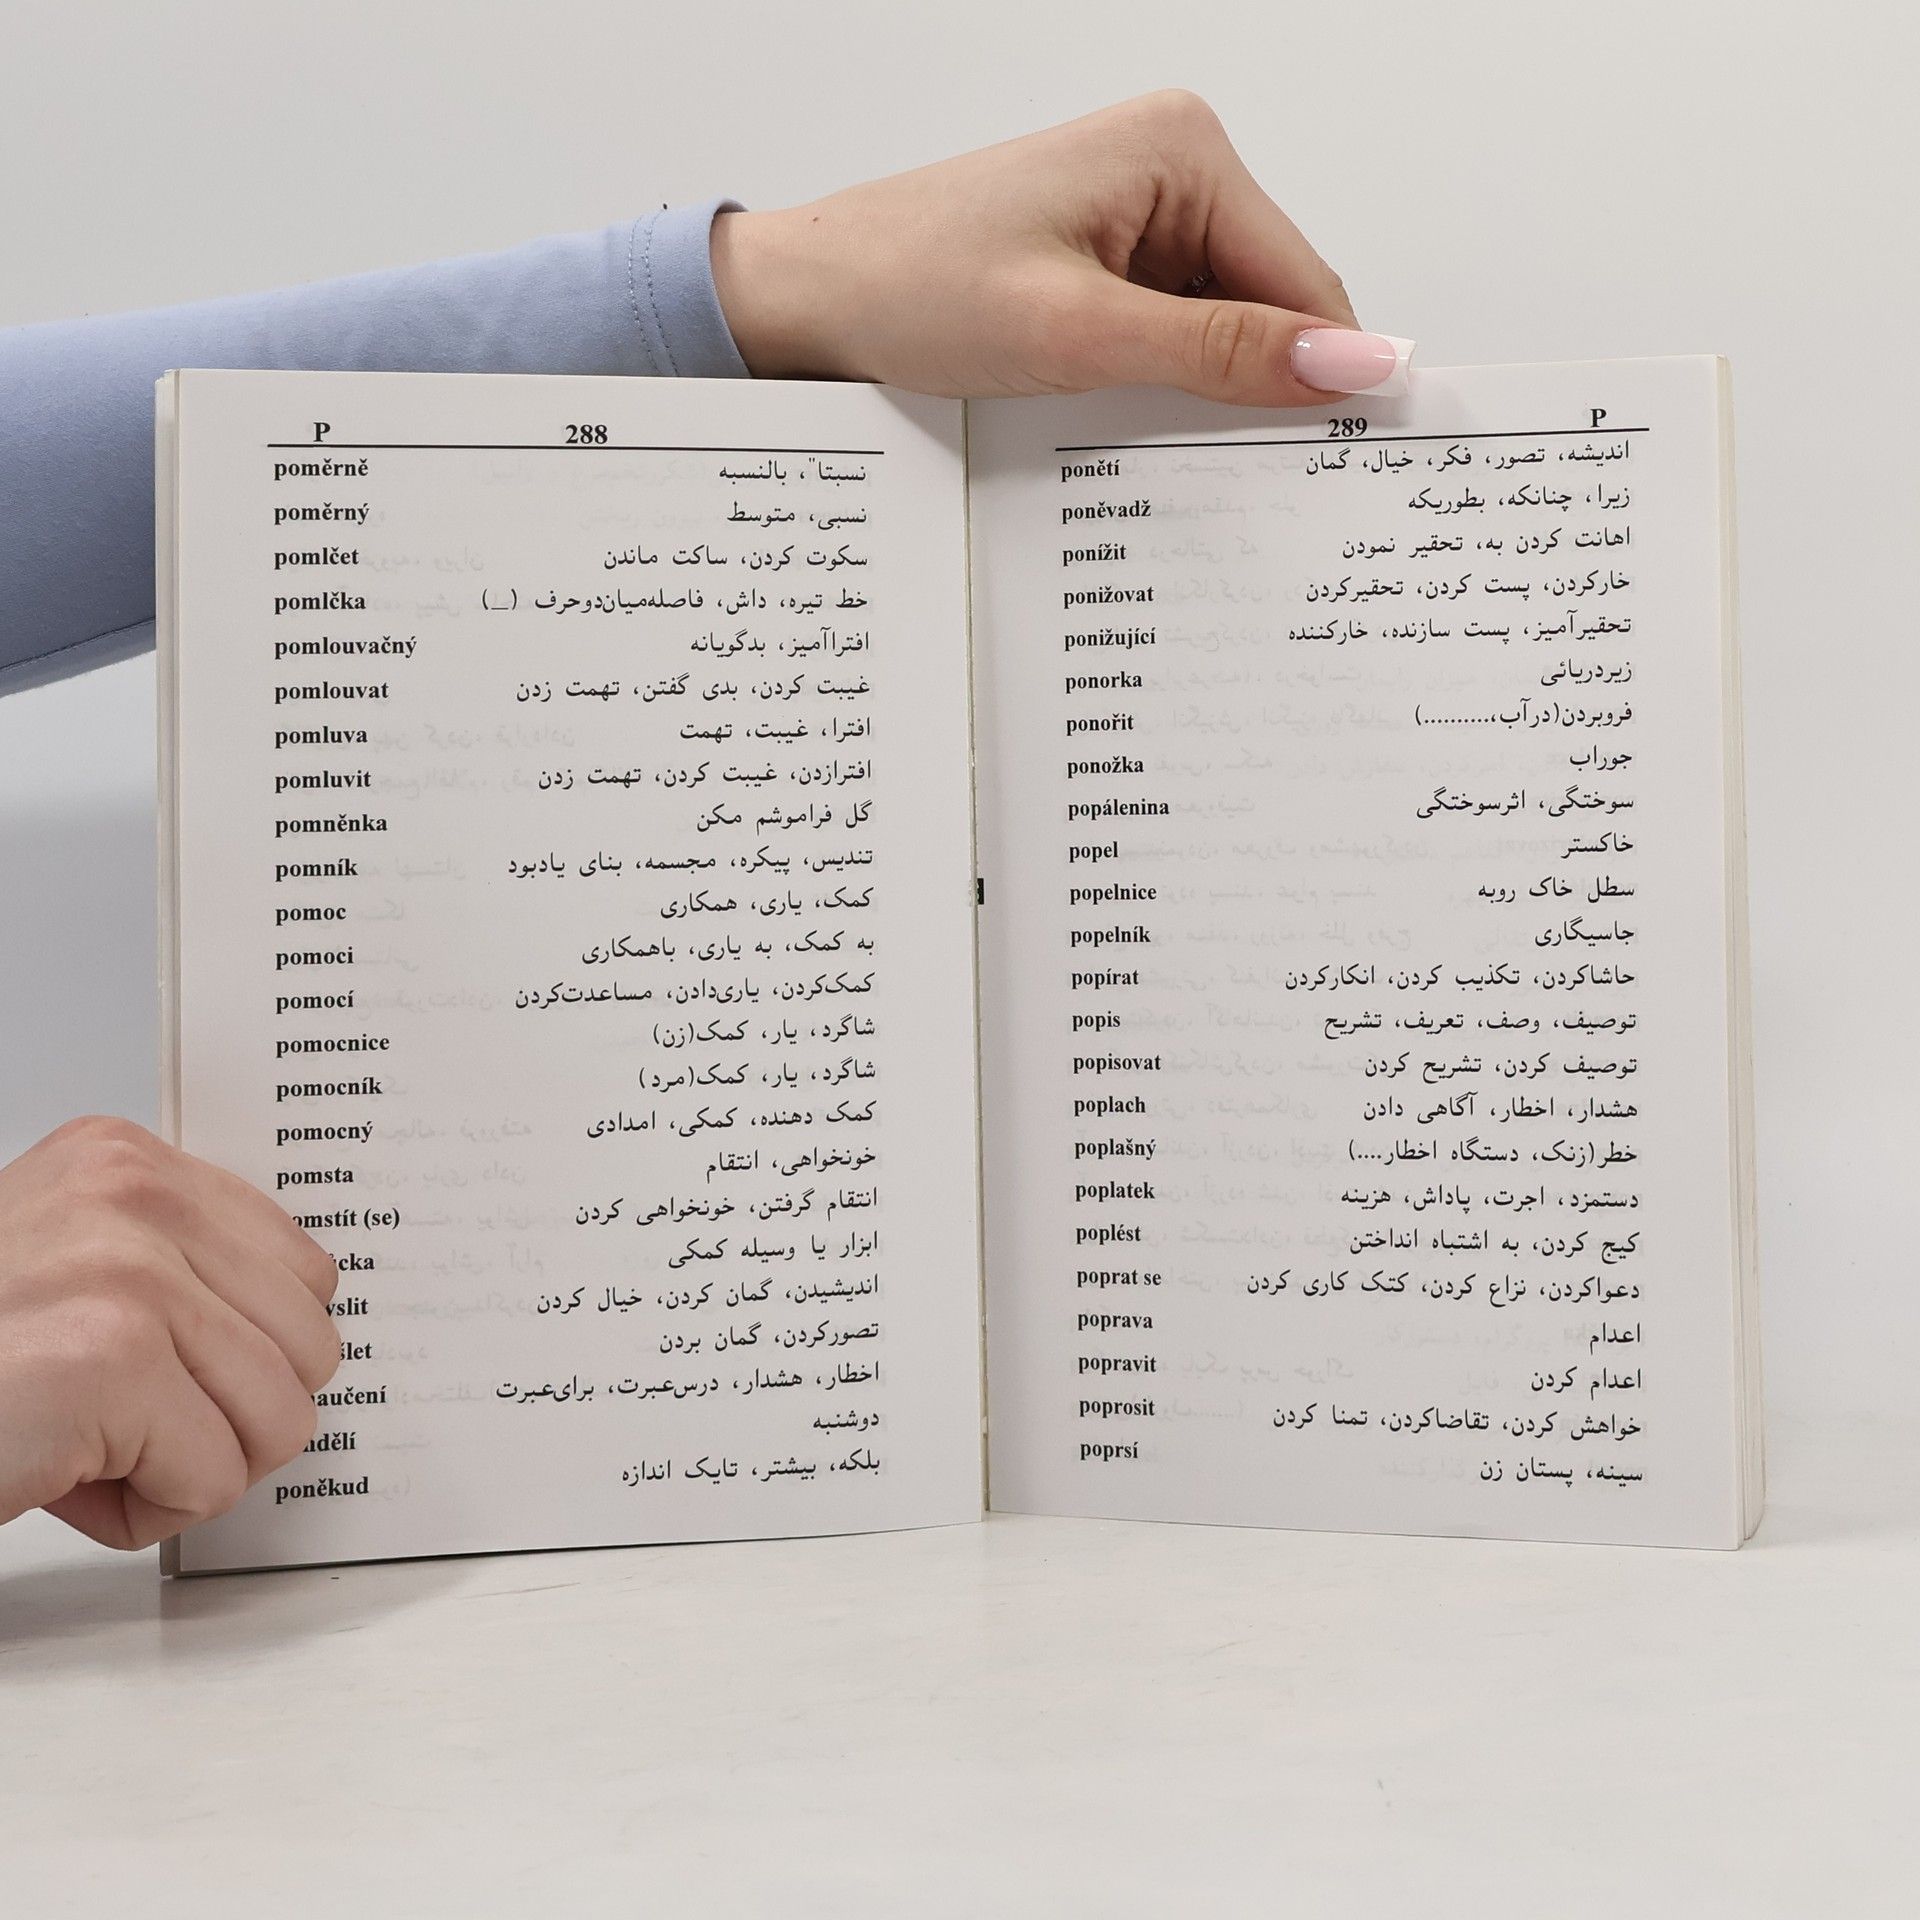 P 288
poměrně نسبتا"، بالنسبه
poměrný نسبی، متوسط
pomlčet سکوت کردن، ساکت ماندن
pomlčka خط تیره، داش، فاصله‌میان‌دوحرف (_)
pomlouvačný افتراآمیز، بدگویانه
pomlouvat غیبت کردن، بدی گفتن، تهمت زدن
pomluva افترا، غیبت، تهمت
pomluvit افترازدن، غیبت کردن، تهمت زدن
pomněnka گل فراموشم مکن
pomník تندیس، پیکره، مجسمه، بنای یادبود
pomoc کمک، یاری، همکاری
pomoci به کمک، به یاری، باهمکاری
pomocí کمک‌کردن، یاری‌دادن، مساعدت‌کردن
pomocnice شاگرد، یار، کمک(زن)
pomocník شاگرد، یار، کمک(مرد)
pomocný کمک دهنده، کمکی، امدادی
pomsta خونخواهی، انتقام
omstít (se) انتقام گرفتن، خونخواهی کردن
cka ابزار یا وسیله کمکی
yslit اندیشیدن، گمان کردن، خیال کردن
šlet تصورکردن، گمان بردن
naučení اخطار، هشدار، درس‌عبرت، برای‌عبرت
ndělí دوشنبه
poněkud بلکه، بیشتر، تایک اندازه
289 P
ponětí اندیشه، تصور، فکر، خیال، گمان
poněvadž زیرا، چنانکه، بطوریکه
ponížit اهانت کردن به، تحقیر نمودن
ponižovat خارکردن، پست کردن، تحقیرکردن
ponižující تحقیرآمیز، پست سازنده، خارکننده
ponorka زیردریائی
ponořit فروبردن(درآب،..........)
ponožka جوراب
popálenina سوختگی، اثرسوختگی
popel خاکستر
popelnice سطل خاک روبه
popelník جاسیگاری
popírat حاشاکردن، تکذیب کردن، انکارکردن
popis توصیف، وصف، تعریف، تشریح
popisovat توصیف کردن، تشریح کردن
poplach هشدار، اخطار، آگاهی دادن
poplašný خطر(زنک، دستگاه اخطار....)
poplatek دستمزد، اجرت، پاداش، هزینه
poplést کیج کردن، به اشتباه انداختن
poprat se دعواکردن، نزاع کردن، کتک کاری کردن
poprava اعدام
popravit اعدام کردن
poprosit خواهش کردن، تقاضاکردن، تمنا کردن
poprsí سینه، پستان زن